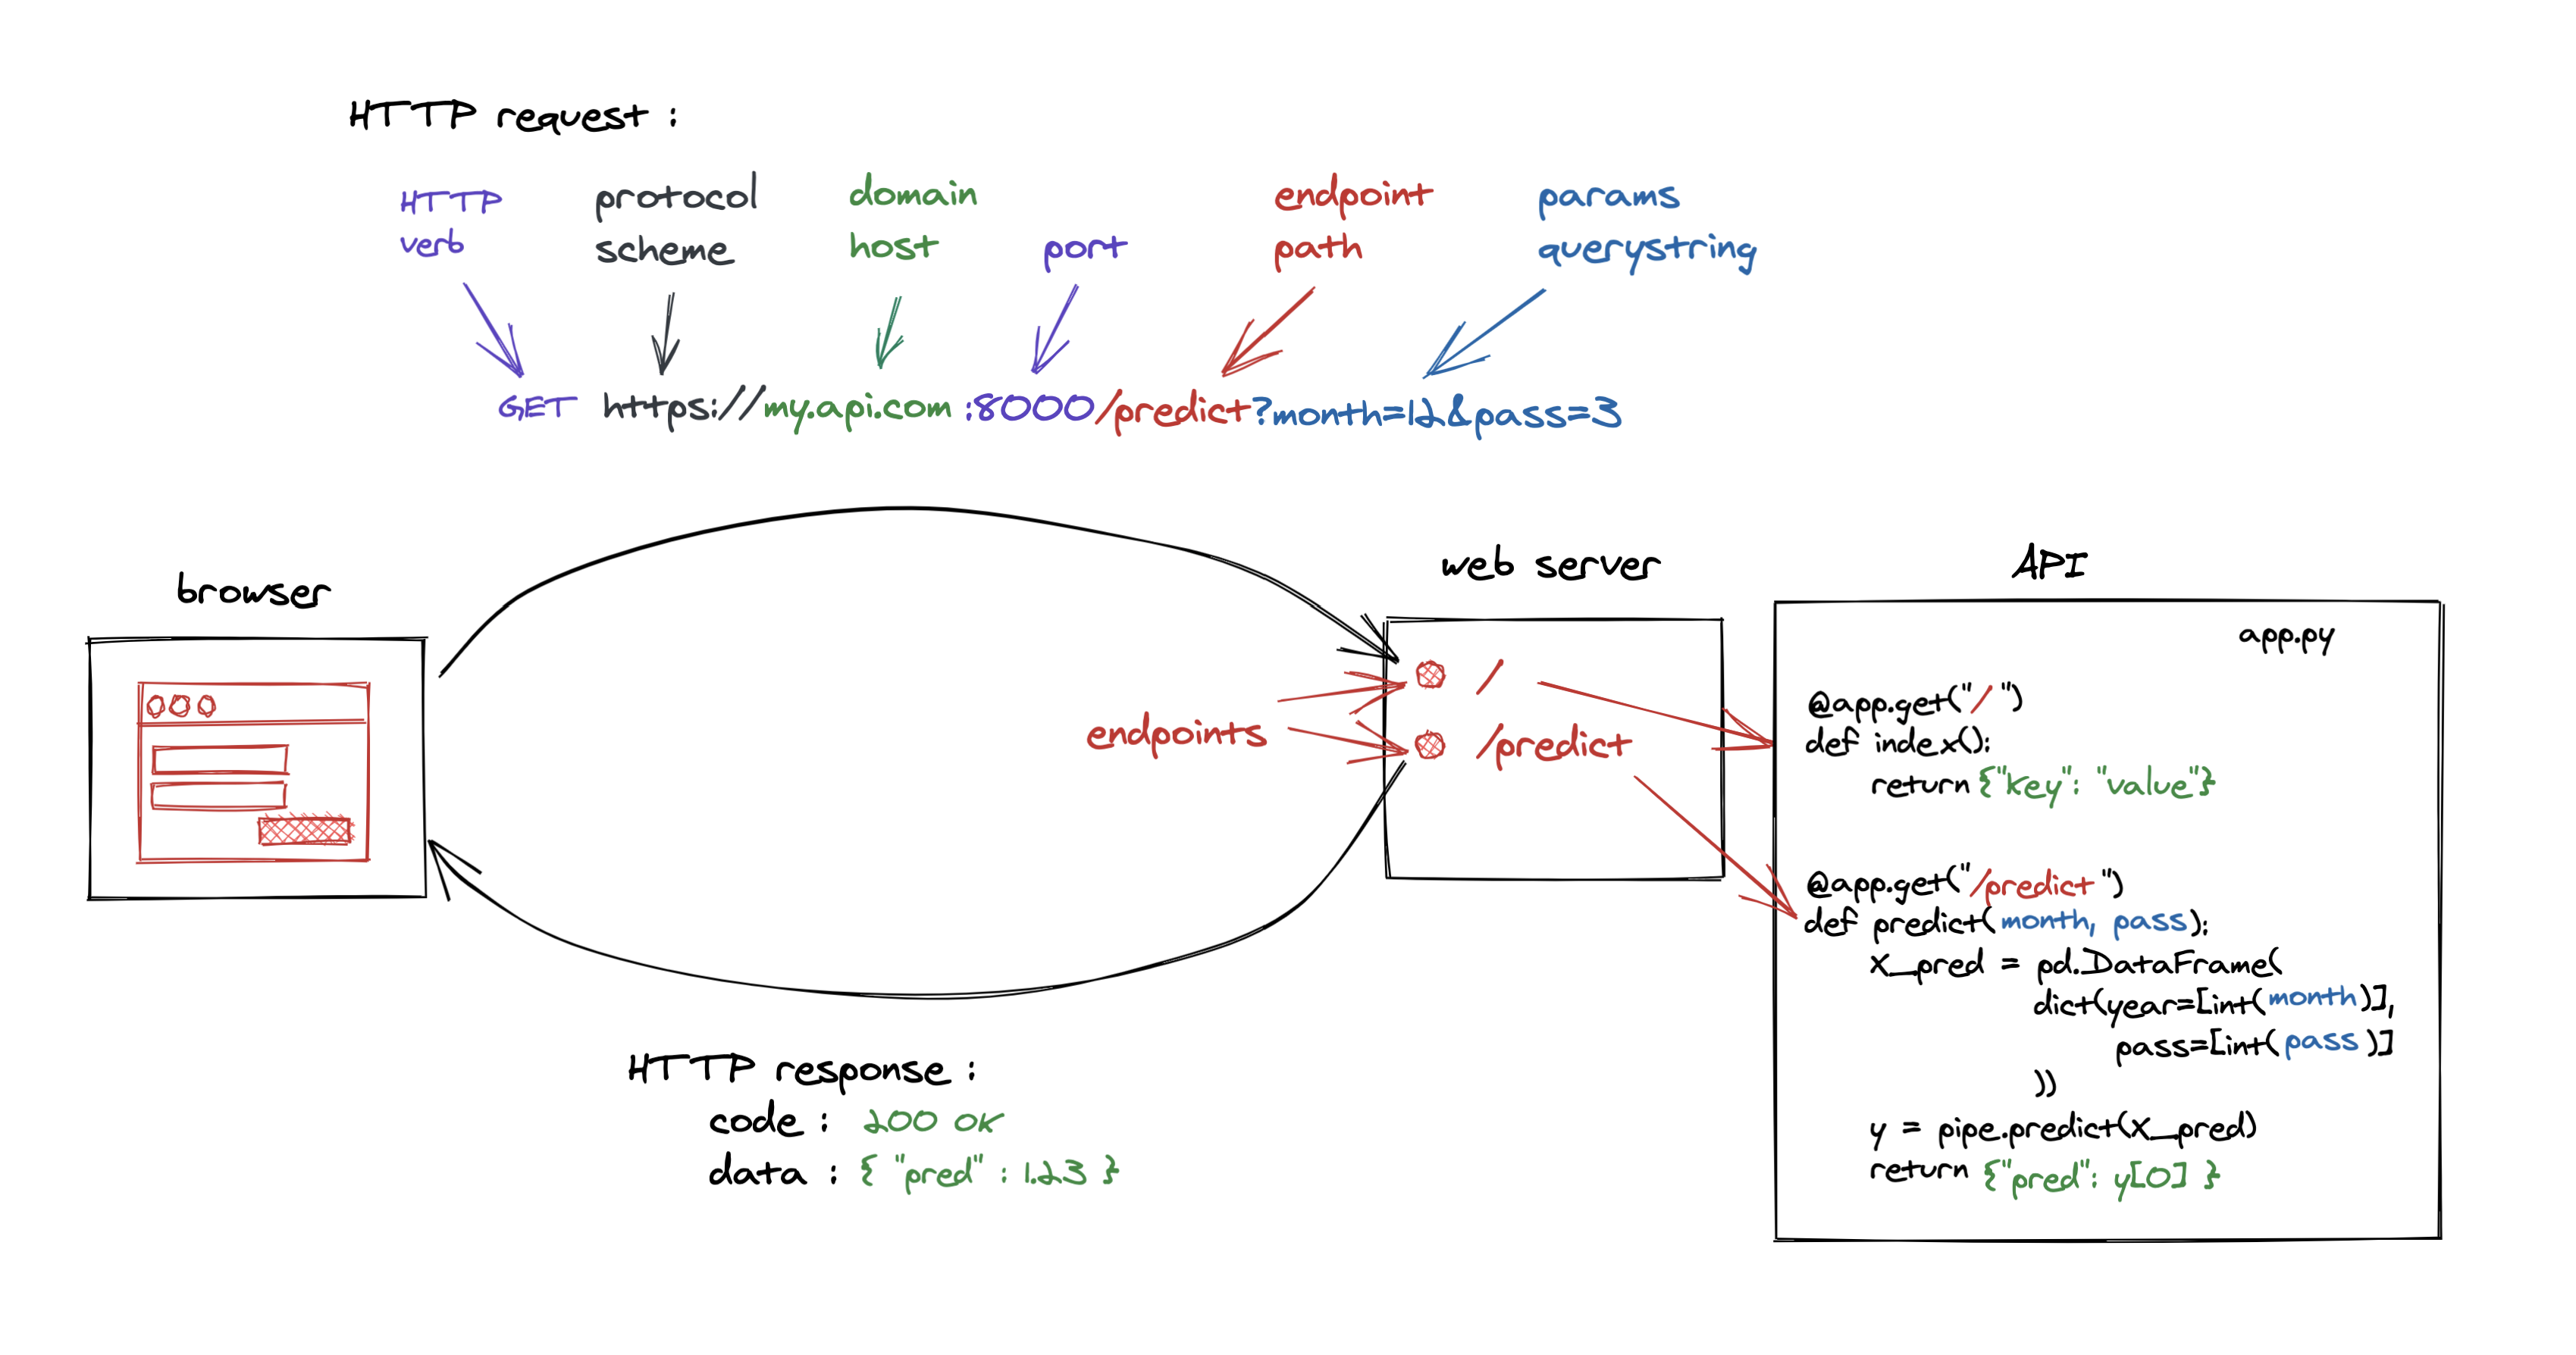 HTTP request :
HTTP verb
protocol scheme
domain host
port
endpoint path
params querystring
GET https://my.api.com :8000/predict?month=12&pass=3
browser
web server
API
endpoints
/
/predict
app.py
@app.get("/")
def index():
return {"key": "value"}
@app.get("/predict")
def predict(month, pass):
X_pred = pd.DataFrame(
dict(year=[int(month)],
pass=[int(pass)]
))
y = pipe.predict(X_pred)
return {"pred": y[0] }
HTTP response :
code : 200 OK
data : { "pred" : 1.23 }